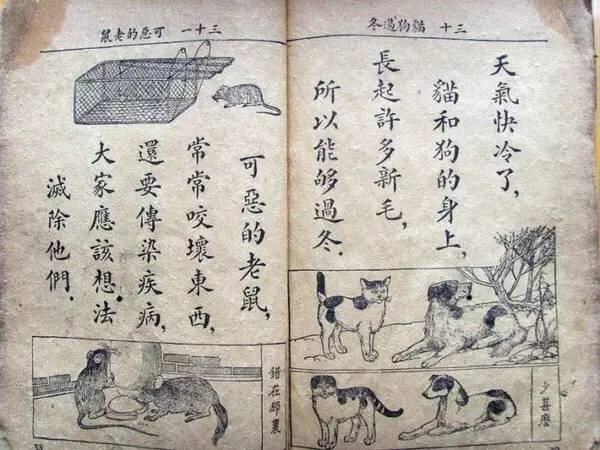 三十 貓狗過冬
天氣快冷了，
貓和狗的身上，
長起許多新毛，
所以能够過冬．
少甚麽
三十一 可惡的老鼠
可惡的老鼠，
常常咬壞東西，
還要傳染疾病，
大家應該想法
滅除他們．
錯在那裏